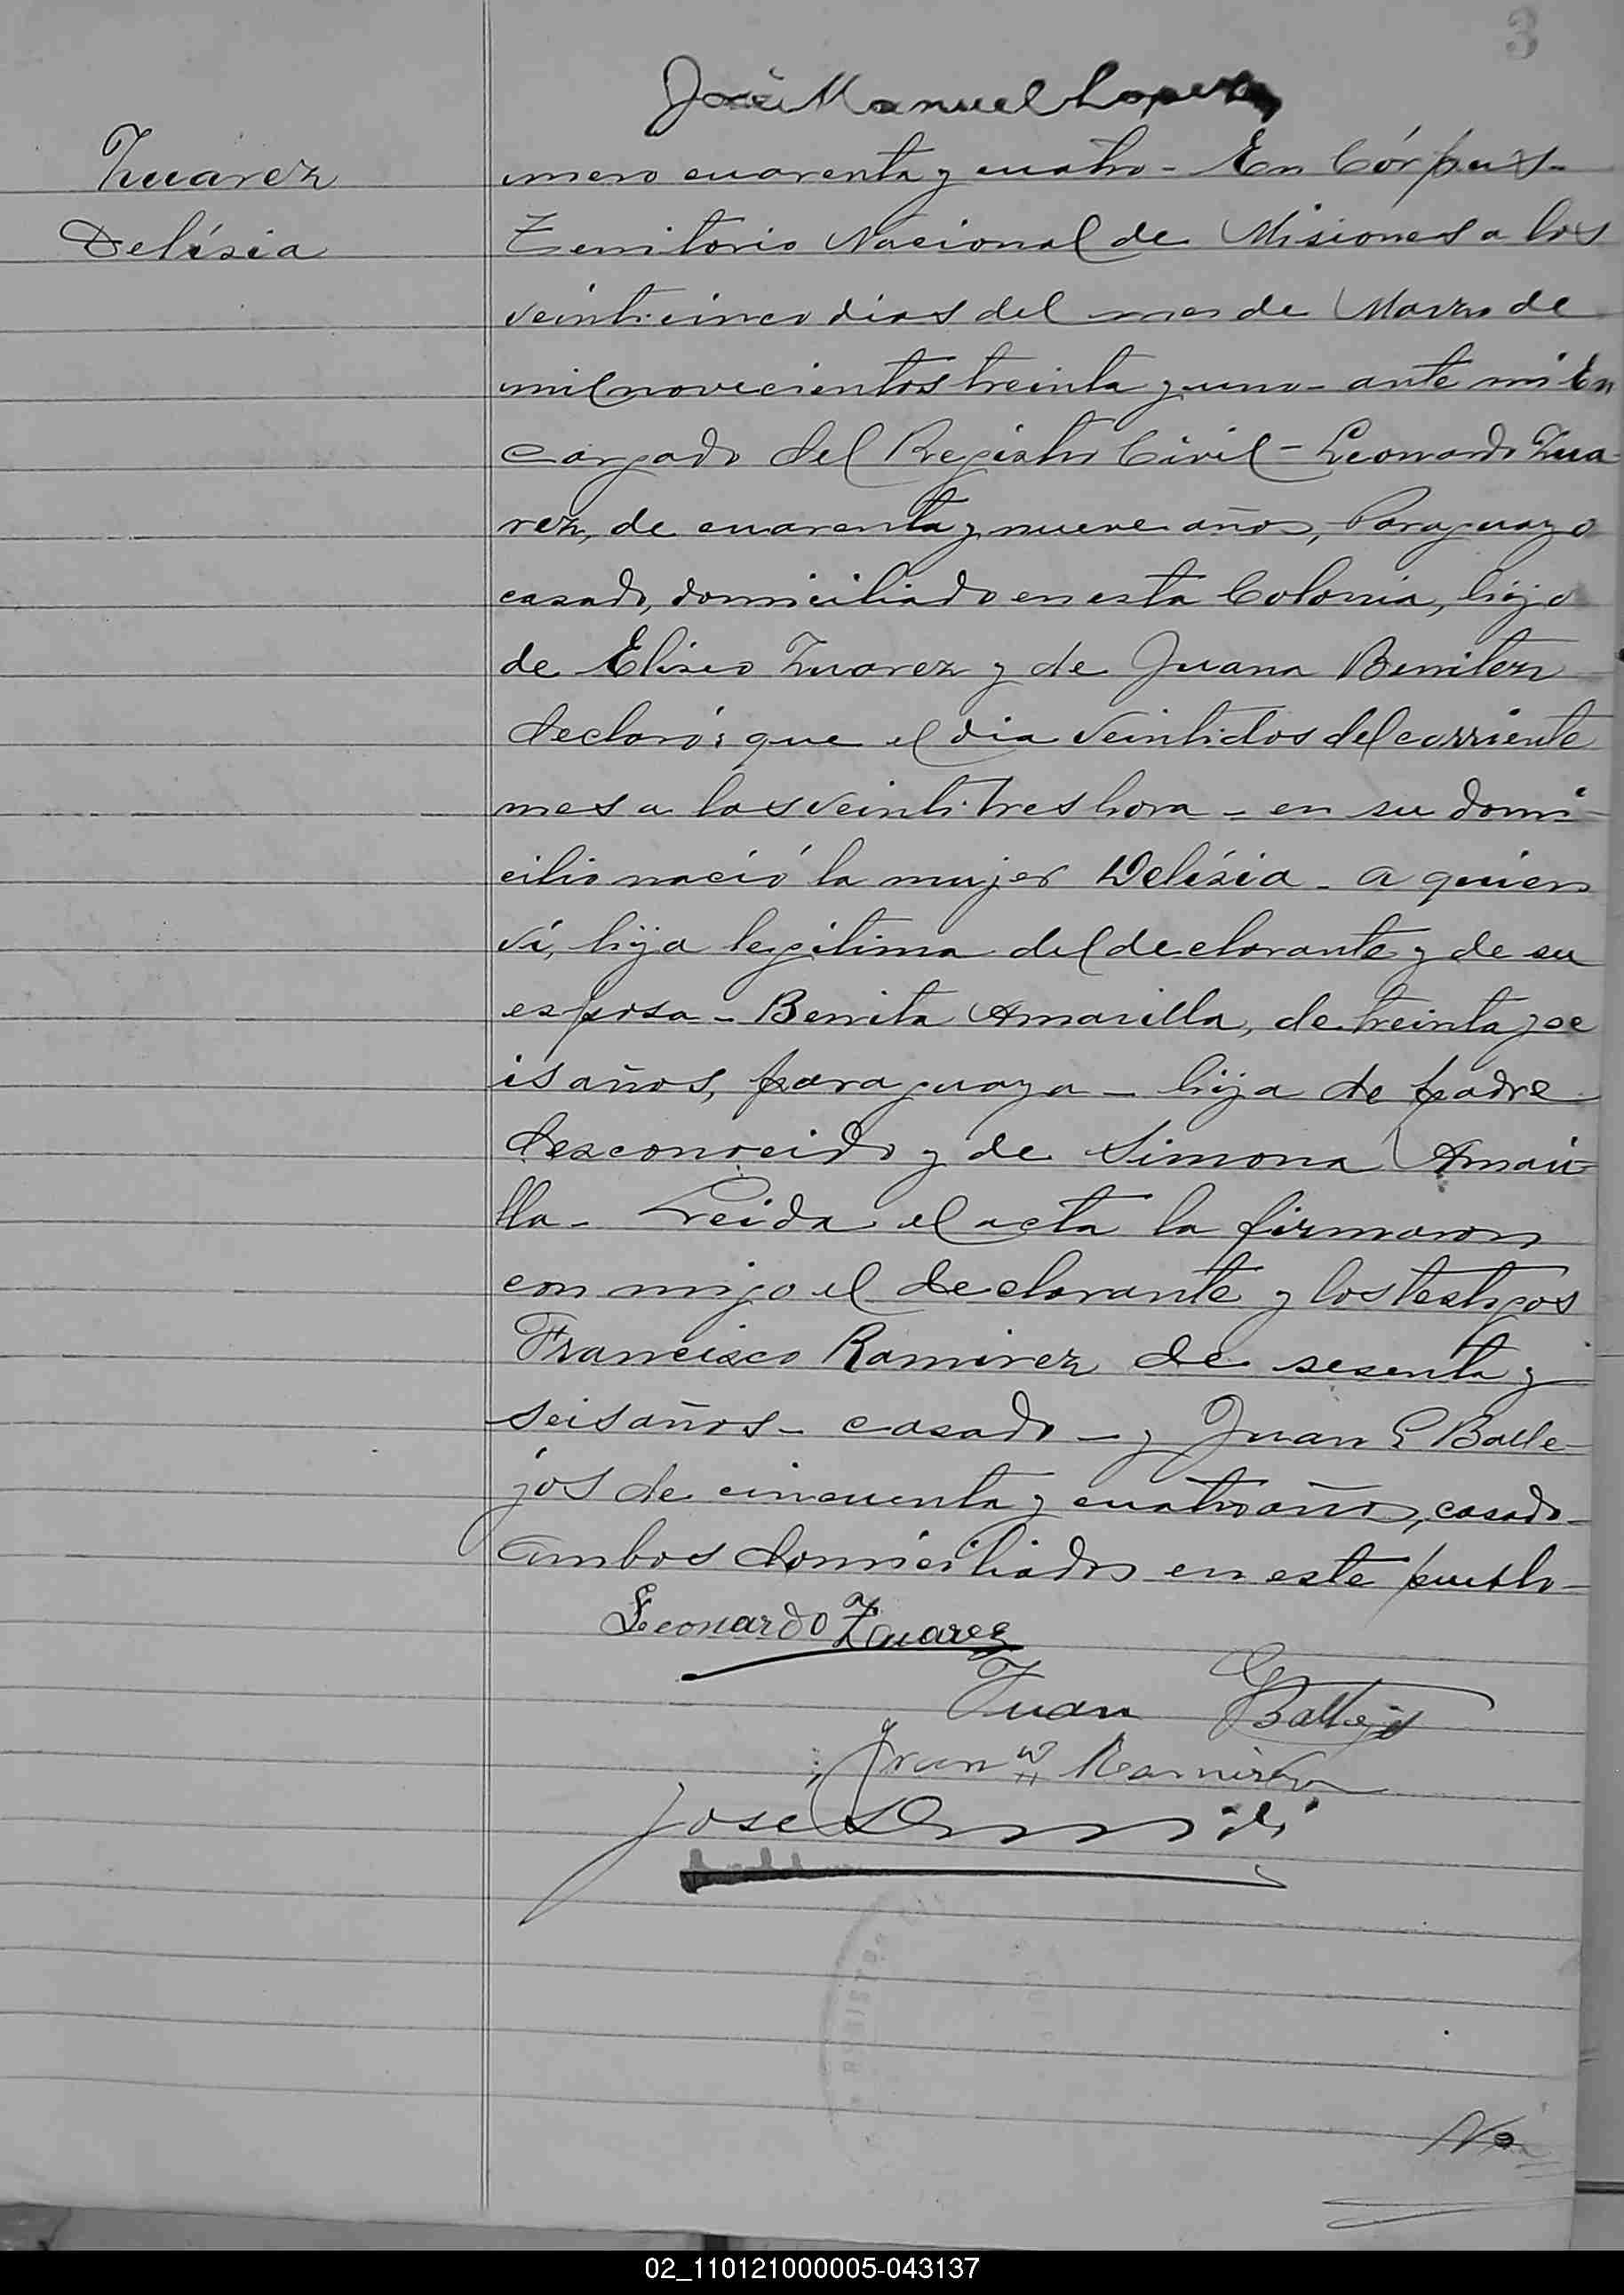 3
José Manuel Lopez
Zuarez
Delísia
mero cuarenta y cuatro - En Córpus -
Territorio Nacional de Misiones a los
veinti cinco dias del mes de Marzo de
mil novecientos treinta y uno - ante mi En
cargado del Registro Civil - Leonardo Zua-
rez, de cuarenta y nueve años, Paraguayo
casado, domiciliado en esta Colonia, hijo
de Eliseo Zuarez y de Juana Benitez
declaró: que el dia veintidos del corriente
mes a las veinti tres hora - en su domi-
cilio nació la mujer Delísia - a quien
ví, hija legítima del declarante y de su
esposa - Benita Amarilla, de treinta y se
is años, paraguaya - hija de padre
desconocido y de Simona Amari-
lla - Leida el acta la firmaron
con migo el declarante y los testigos
Francisco Ramirez de sesenta y
seis años - casado - y Juan G Balle-
jos de cincuenta y cuatro años, casado -
ambos domiciliados en este pueblo -
Leonardo Zuarez
Juan G Ballejos
Fran co Ramirez
Jose
No
02_110121000005-043137